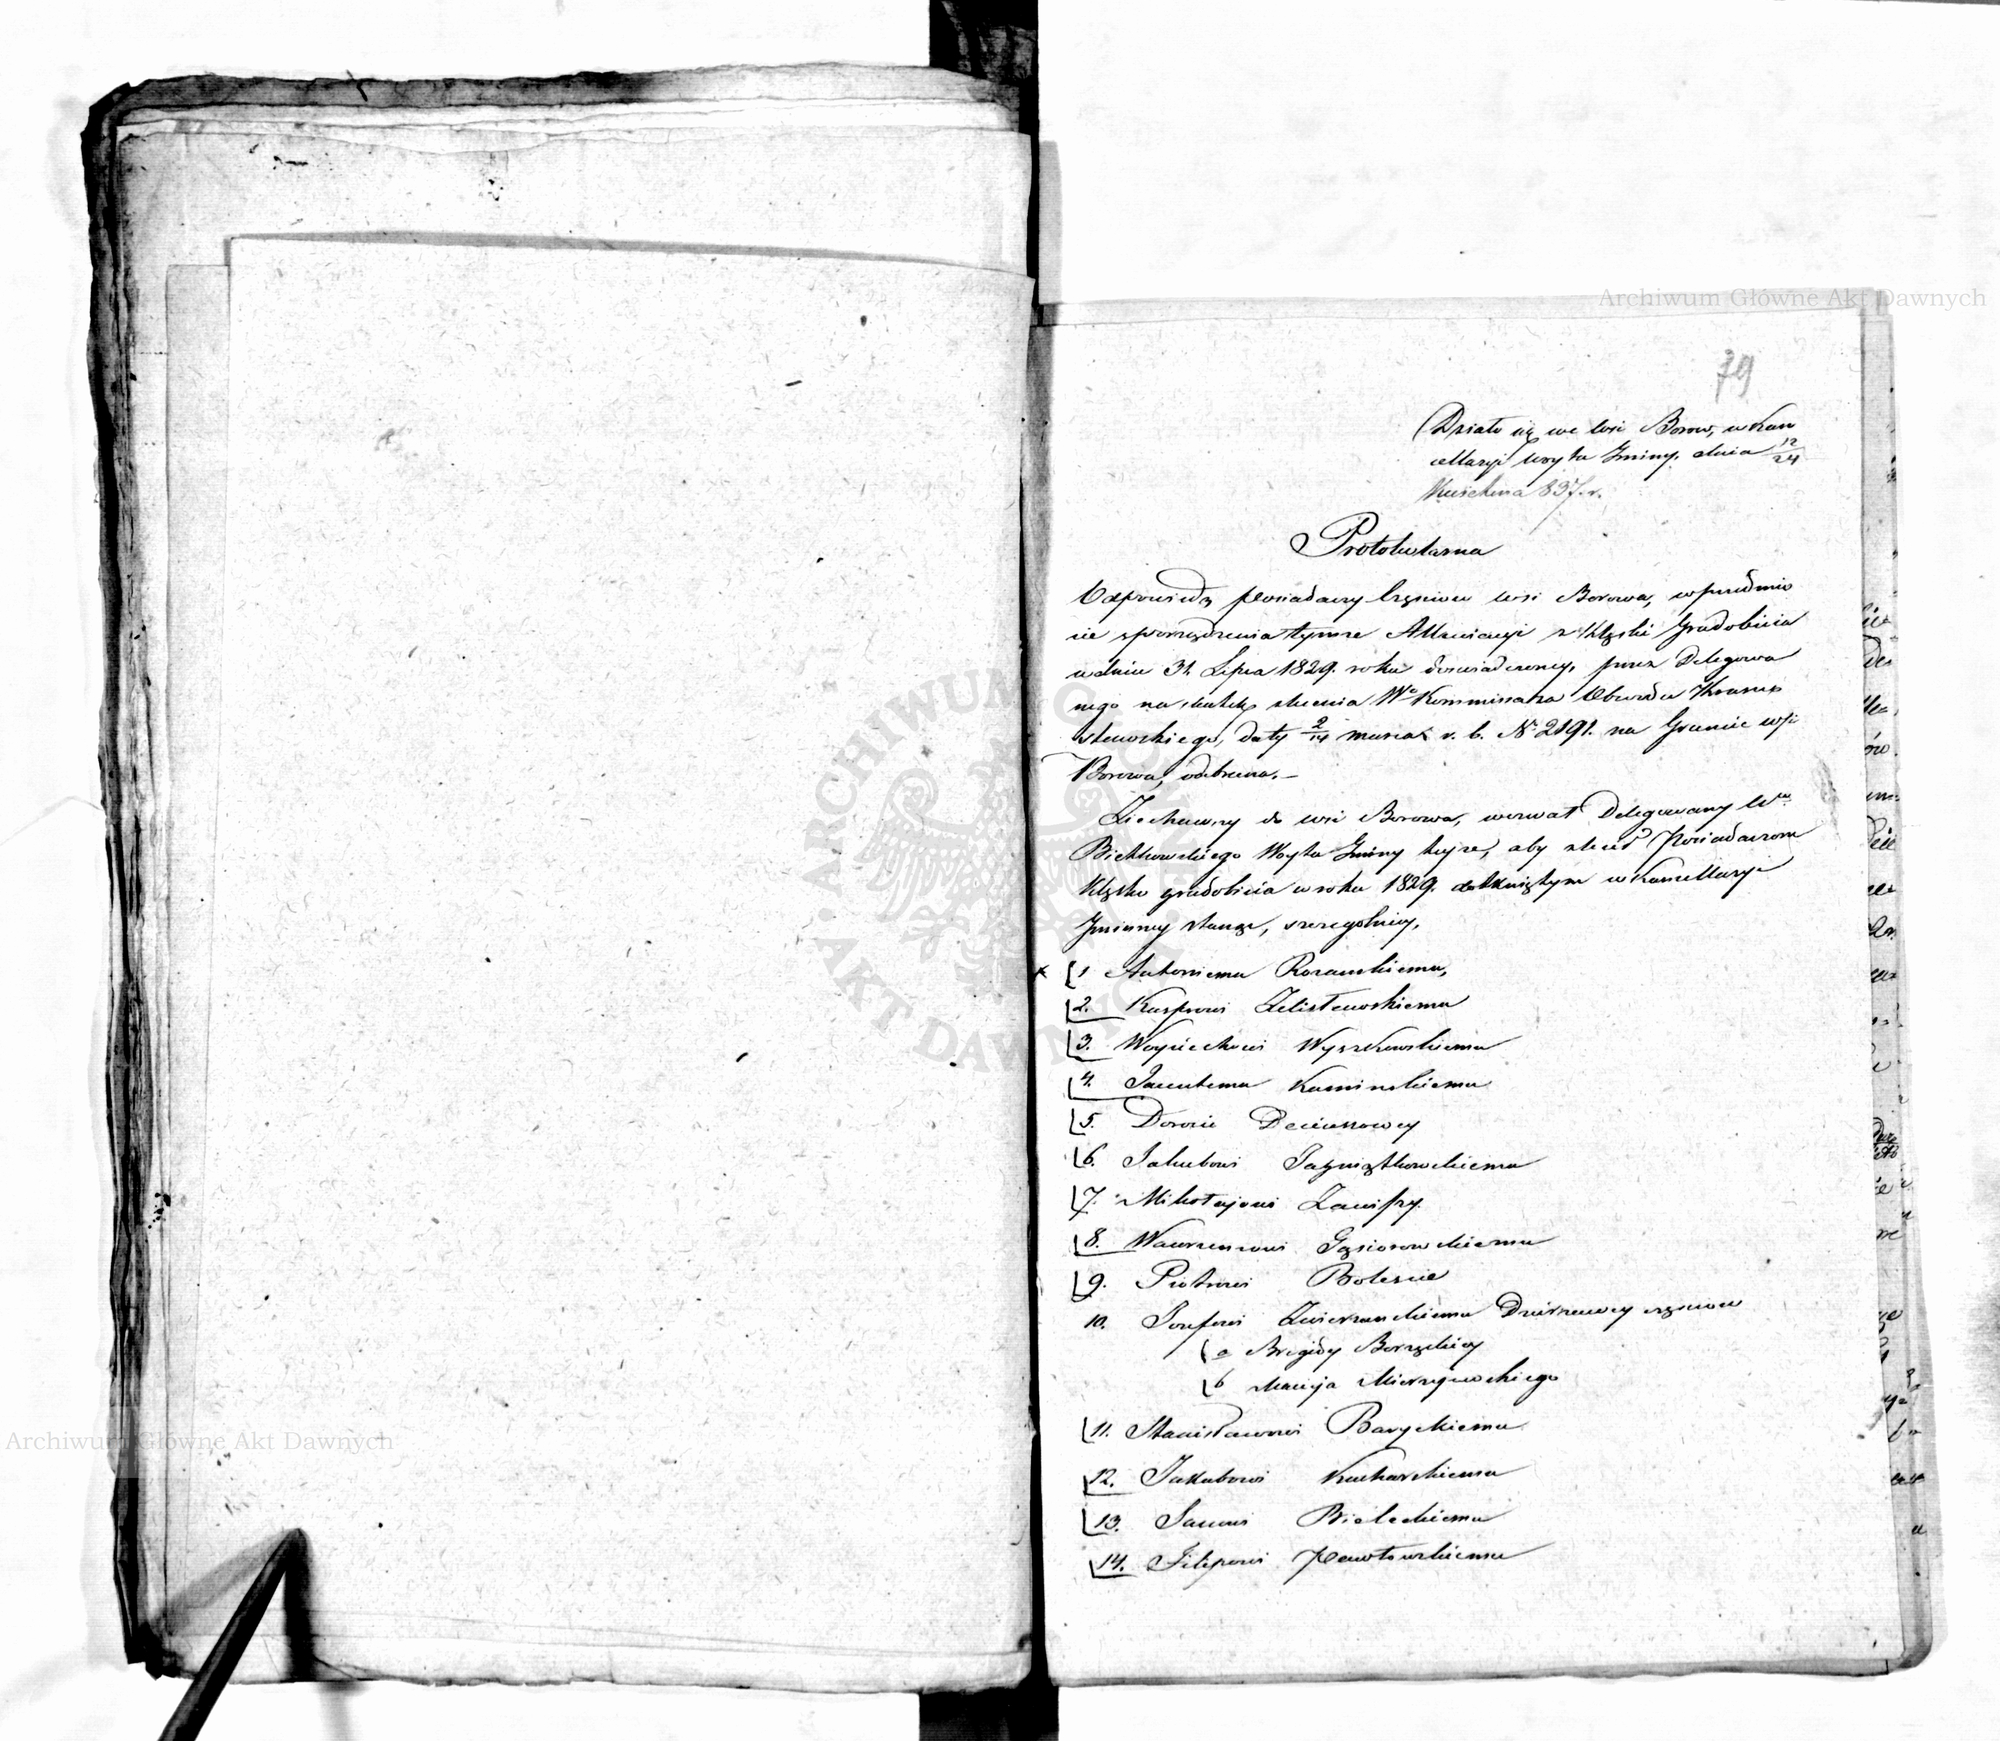 Archiwum Główne Akt Dawnych
79
Działo się we wsi Borow, w Kan
cellaryi Woyta Gminy, dnia 12/24
Kwietnia 837. r.
Protokularna
Odpowiedz posiadaczy czynszow wsi Borowa, w przedmio
cie sporządzenia tymże z Klęski Gradobicia
w dniu 31. Lipca 1829. roku doswiadczoney, przez Delegowa
nego na skutek zlecenia Wo Kommissarza Obwodu Krasny
stawskiego, daty 2/14 marca r. b. No 2191. na Gruncie wsi
Borowa, odebrana. —
Ziechawszy do wsi Borowa, wezwał Delegowany Wo
Woyta Gminy tuyże, aby zlecił Posiadaczom
Klęską gradobicia w roku 1829. dotkniętym w Kancellaryi
Gminney stanąć, szczegolniey,
1 Antoniemu
2. Kasprowi
3. Woyciechowi Wyszkowskiemu
4. Jacentemu Kaminskiemu
5. Dorocie
6. Jakubowi
7. Mikołajowi Zawiszy
8. Wawrzencowi Gąsiorowskiemu
9. Piotrowi Bolescie
10. Jozefowi Dzierzawcy czynszow
a Brygidy
b Macieja Mierzejewskiego
11. Stanisławowi Baryckiemu
12. Jakubowi Kucharskiemu
13. Janowi Bieleckiemu
14. Filipowi Pawłowskiemu
ARCHIWUM GŁÓWNE AKT DAWNYCH
Archiwum Główne Akt Dawnych